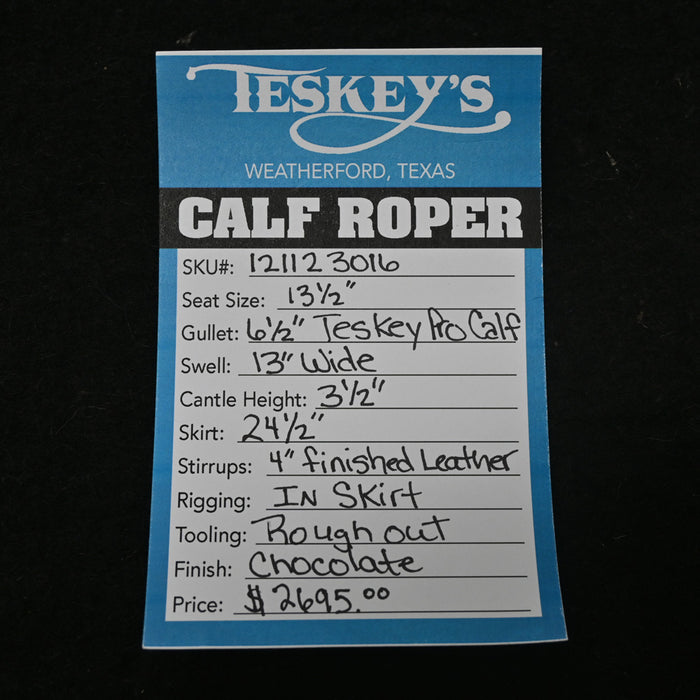 TESKEY'S
WEATHERFORD, TEXAS
CALF ROPER
SKU#: 121123016
Seat Size: 13½"
Gullet: 6½" Teskey Pro Calf
Swell: 13" Wide
Cantle Height: 3½"
Skirt: 24½"
Stirrups: 4" finished Leather
Rigging: IN SKirt
Tooling: Rough out
Finish: Chocolate
Price: $2695.00